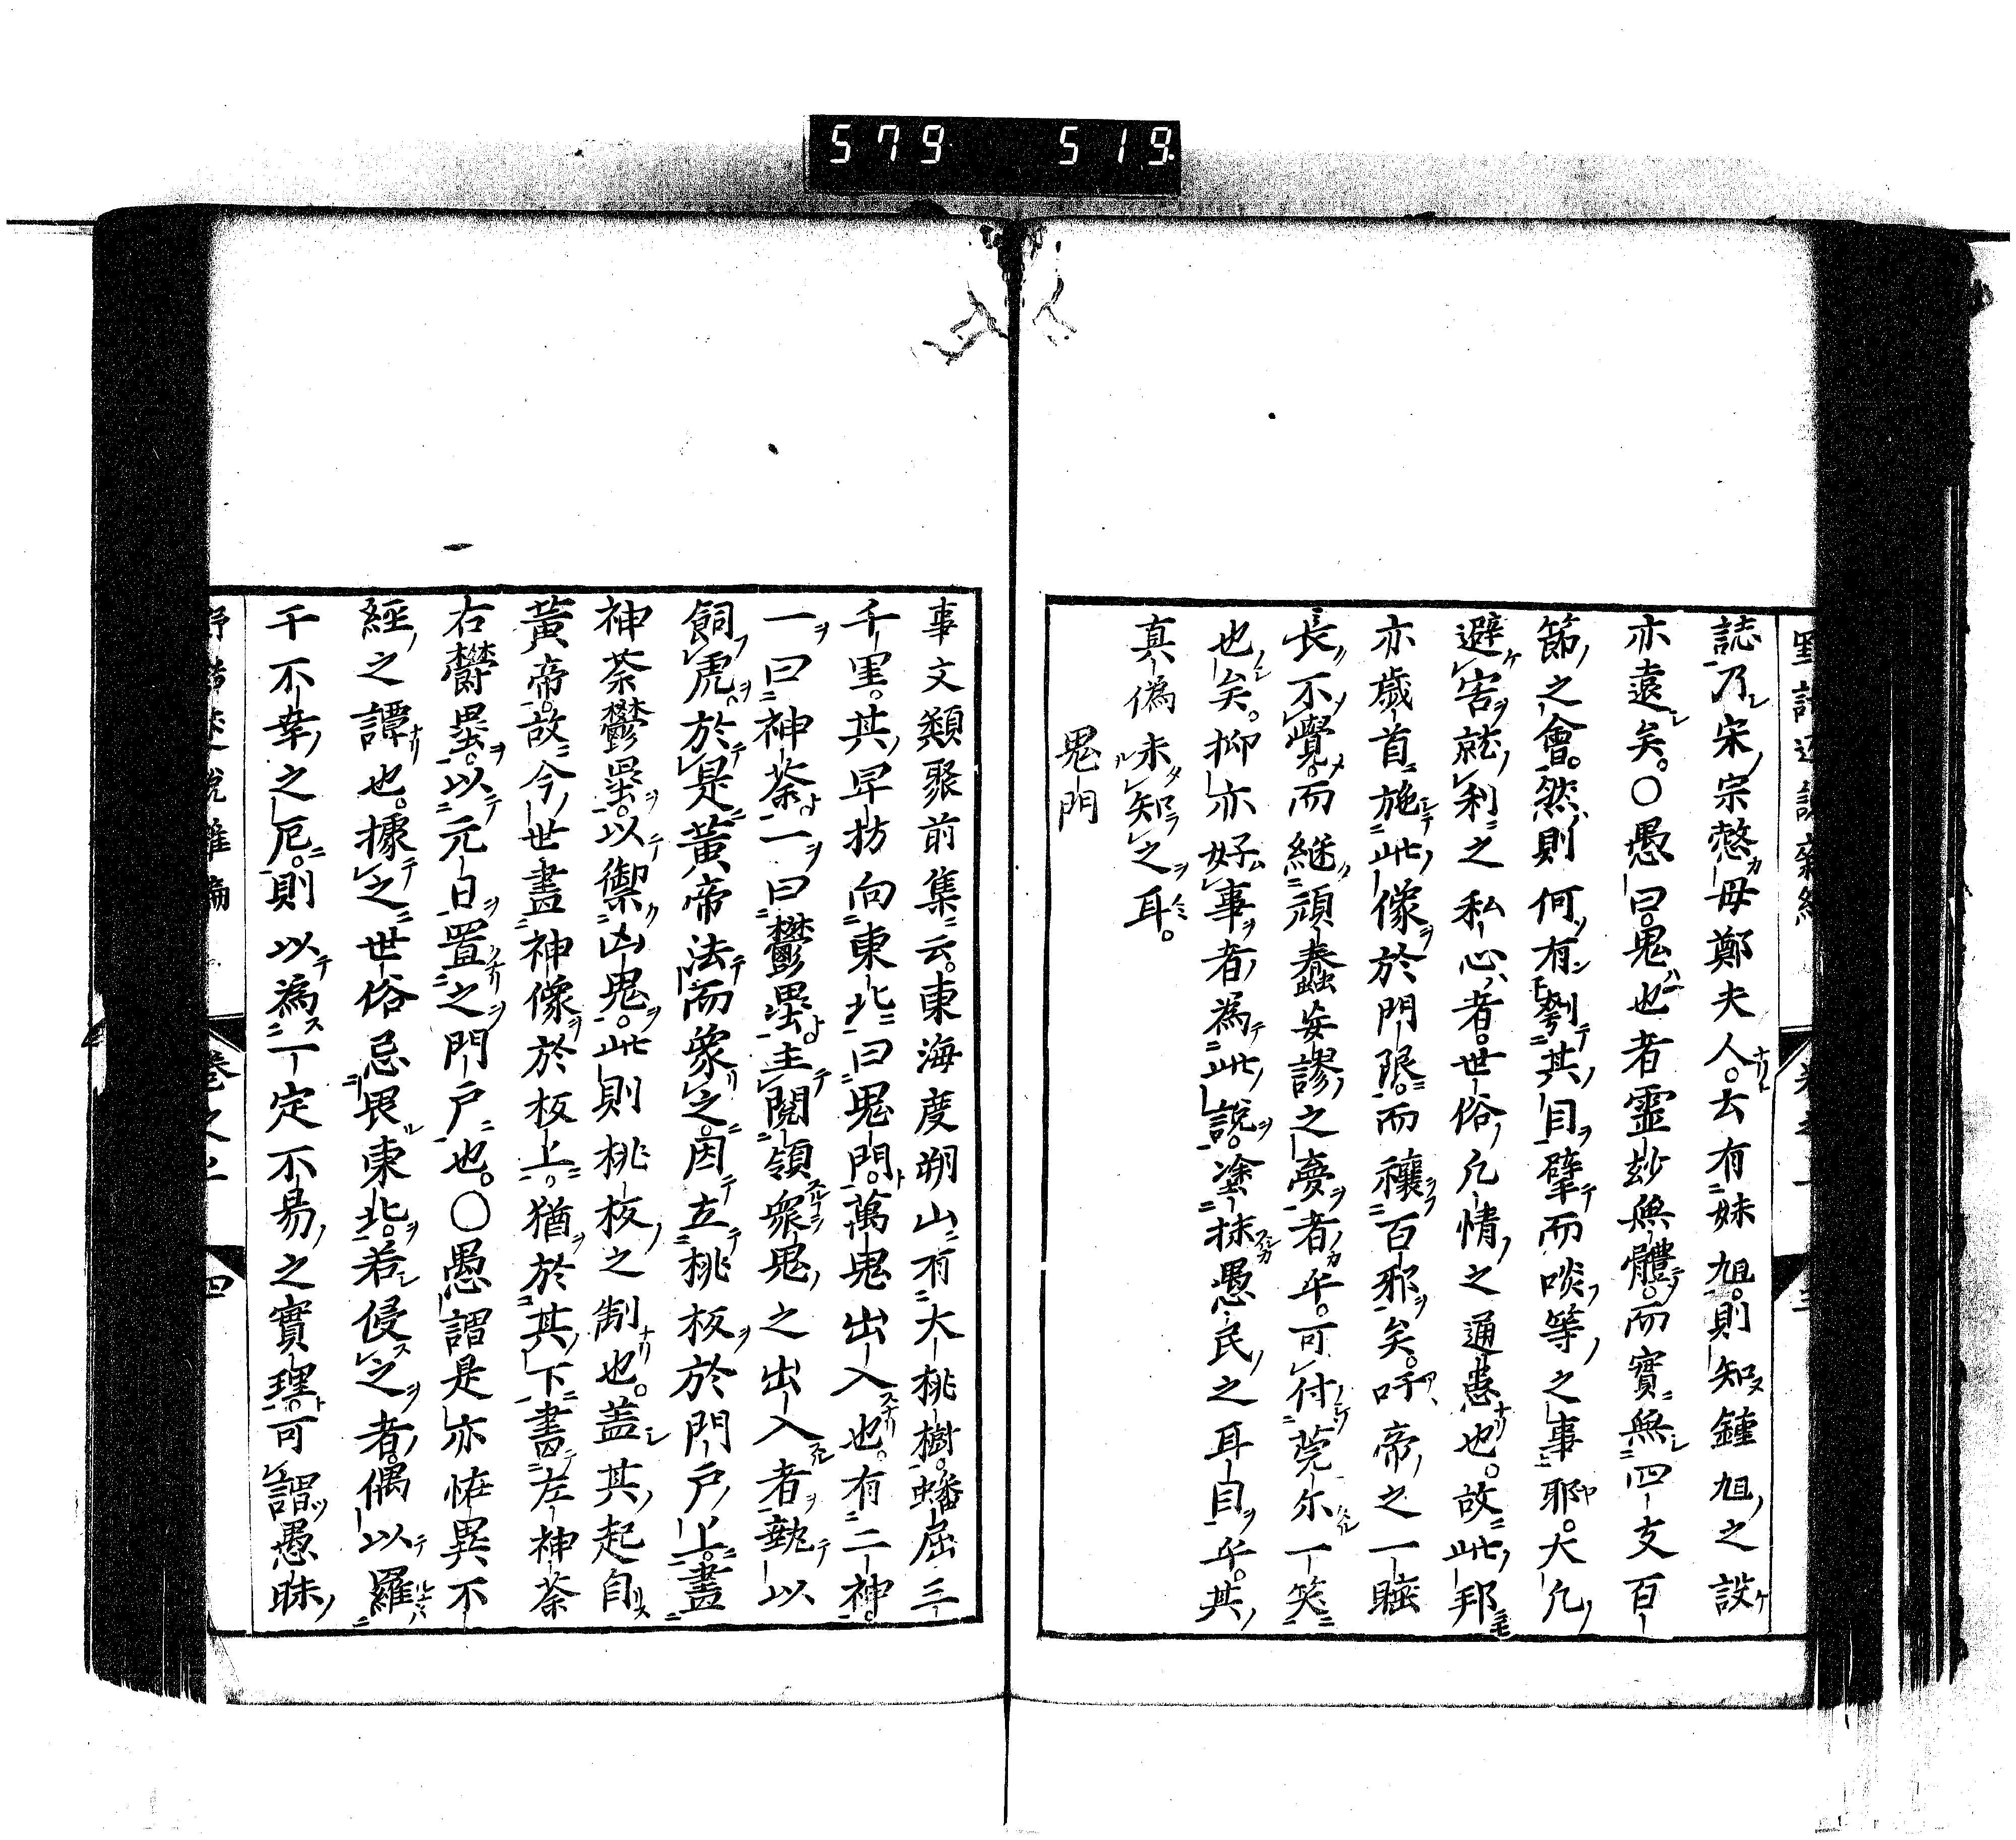 579 519
誌乃宋宗愨母鄭夫人去有妹旭則知鍾旭之設
亦遠矣○愚曰鬼也者霊玅無體而實無四支百
節之會然則何有刳其目擘而啖等之事耶大凢
避害就利之私心者世俗凢情之通患也故此邦
亦歲首施此像於門限而禳百邪矣吁帝之一睡
長不覺而継頑蠢妄謬之夢者乎可付莞尓一笑
也矣抑亦好事者為此説塗抹愚民之耳目乎其
真偽未知之耳
鬼門
事文類聚前集云東海度朔山有大桃樹蟠屈三
千里其卑枋向東北曰鬼門萬鬼出入也有二神
一曰神荼一曰鬱壘主閱領衆鬼之出入者執以
飼虎於是黄帝法而象之因立桃板於門戶上畫
神荼鬱壘以禦凶鬼此則桃板之制也盖其起自
黄帝故今世畫神像於板上猶於其下書左神荼
右鬱壘以元日置之門戶也○愚謂是亦恠異不
經之譚也據之世俗忌畏東北若侵之者偶以羅
千不幸之厄則以為一定不易之實理可謂愚昧
巻之上 四